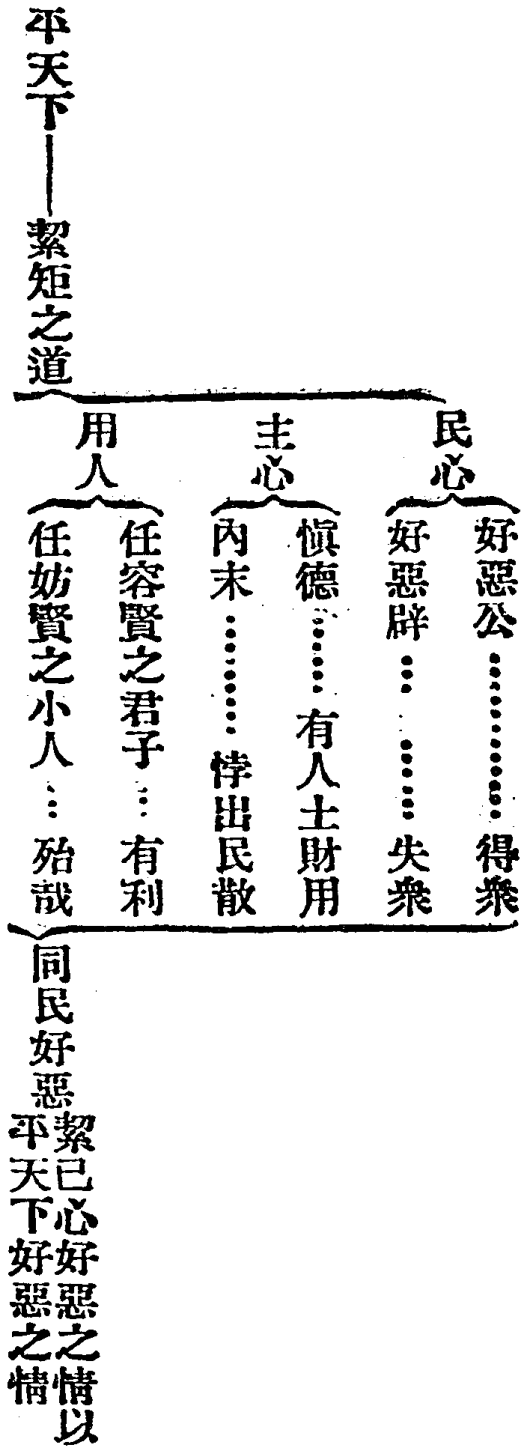 平天下——絜矩之道
民心
好惡公…………得眾
好惡辟………失眾
主心
愼德……有人土財用
內末………悖出民散
用人
任容賢之君子…有利
任妨賢之小人…殆哉
同民好惡
絜已心好惡之情以
平天下好惡之情